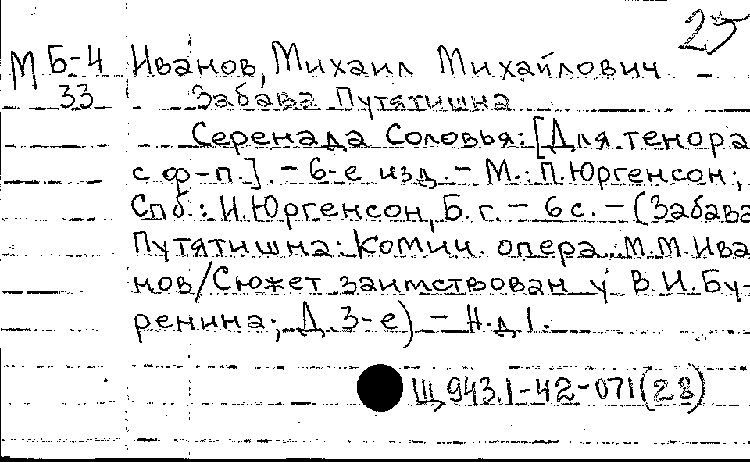 25
М Б-4 Иванов, Михаил Михайлович
33 Забава Путятишна
Серенада Соловья: [Для тенора
с ф-п.]. - 6-е изд. - М.: П. Юргенсон;
Спб.: И. Юргенсон, Б. г. - 6 с. - (Забава
Путятишна: Комич. опера М. М. Ива
нов/Сюжет заимствован у В. И. Бу-
ренина; Д. 3-е) - Н. д 1.
Щ 943.1-42-071(28)